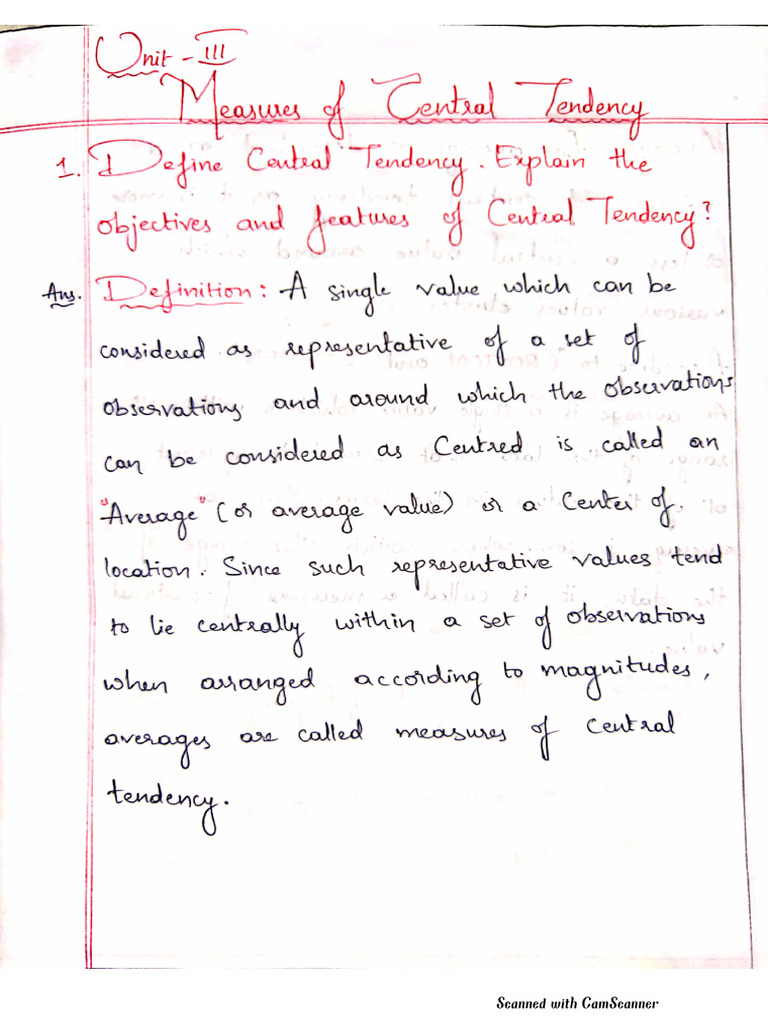 Unit - III
Measures of Central Tendency
1. Define Central Tendency. Explain the
objectives and features of Central Tendency?
Ans. Definition: A single value which can be
considered as representative of a set of
observations and around which the observations
can be considered as Centred is called an
"Average" (or average value) or a Center of.
location. Since such representative values tend
to lie centrally within a set of observations
when arranged according to magnitudes,
averages are called measures of central
tendency.
Scanned with CamScanner